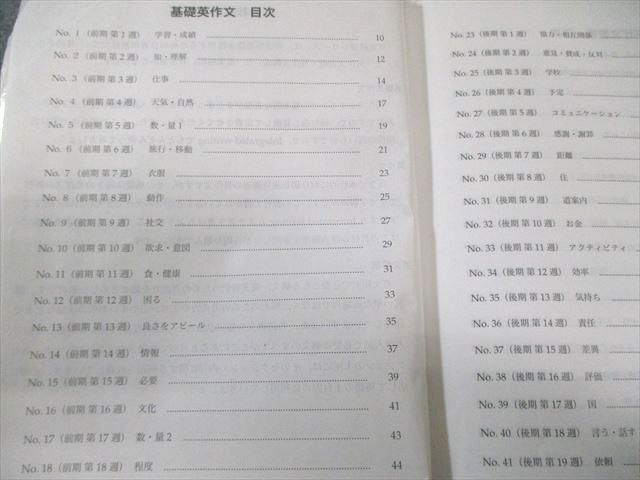 基礎英作文 目次
No. 1 (前期 第1週) 学習・成績 10
No. 2 (前期 第2週) 知・理解 12
No. 3 (前期 第3週) 仕事 14
No. 4 (前期 第4週) 天気・自然 17
No. 5 (前期 第5週) 数・量1 19
No. 6 (前期 第6週) 旅行・移動 21
No. 7 (前期 第7週) 衣服 23
No. 8 (前期 第8週) 動作 25
No. 9 (前期 第9週) 社交 27
No. 10 (前期 第10週) 欲求・意図 29
No. 11 (前期 第11週) 食・健康 31
No. 12 (前期 第12週) 困る 33
No. 13 (前期 第13週) 良さをアピール 35
No. 14 (前期 第14週) 情報 37
No. 15 (前期 第15週) 必要 39
No. 16 (前期 第16週) 文化 41
No. 17 (前期 第17週) 数・量2 43
No. 18 (前期 第18週) 程度 44
No. 23 (後期 第1週) 協力・相互関係
No. 24 (後期 第2週) 意見・賛成・反対
No. 25 (後期 第3週) 学校
No. 26 (後期 第4週) 予定
No. 27 (後期 第5週) コミュニケーション
No. 28 (後期 第6週) 感謝・謝罪
No. 29 (後期 第7週) 距離
No. 30 (後期 第8週) 住
No. 31 (後期 第9週) 道案内
No. 32 (後期 第10週) お金
No. 33 (後期 第11週) アクティビティ
No. 34 (後期 第12週) 効率
No. 35 (後期 第13週) 気持ち
No. 36 (後期 第14週) 責任
No. 37 (後期 第15週) 差異
No. 38 (後期 第16週) 評価
No. 39 (後期 第17週) 国
No. 40 (後期 第18週) 言う・話す
No. 41 (後期 第19週) 依頼